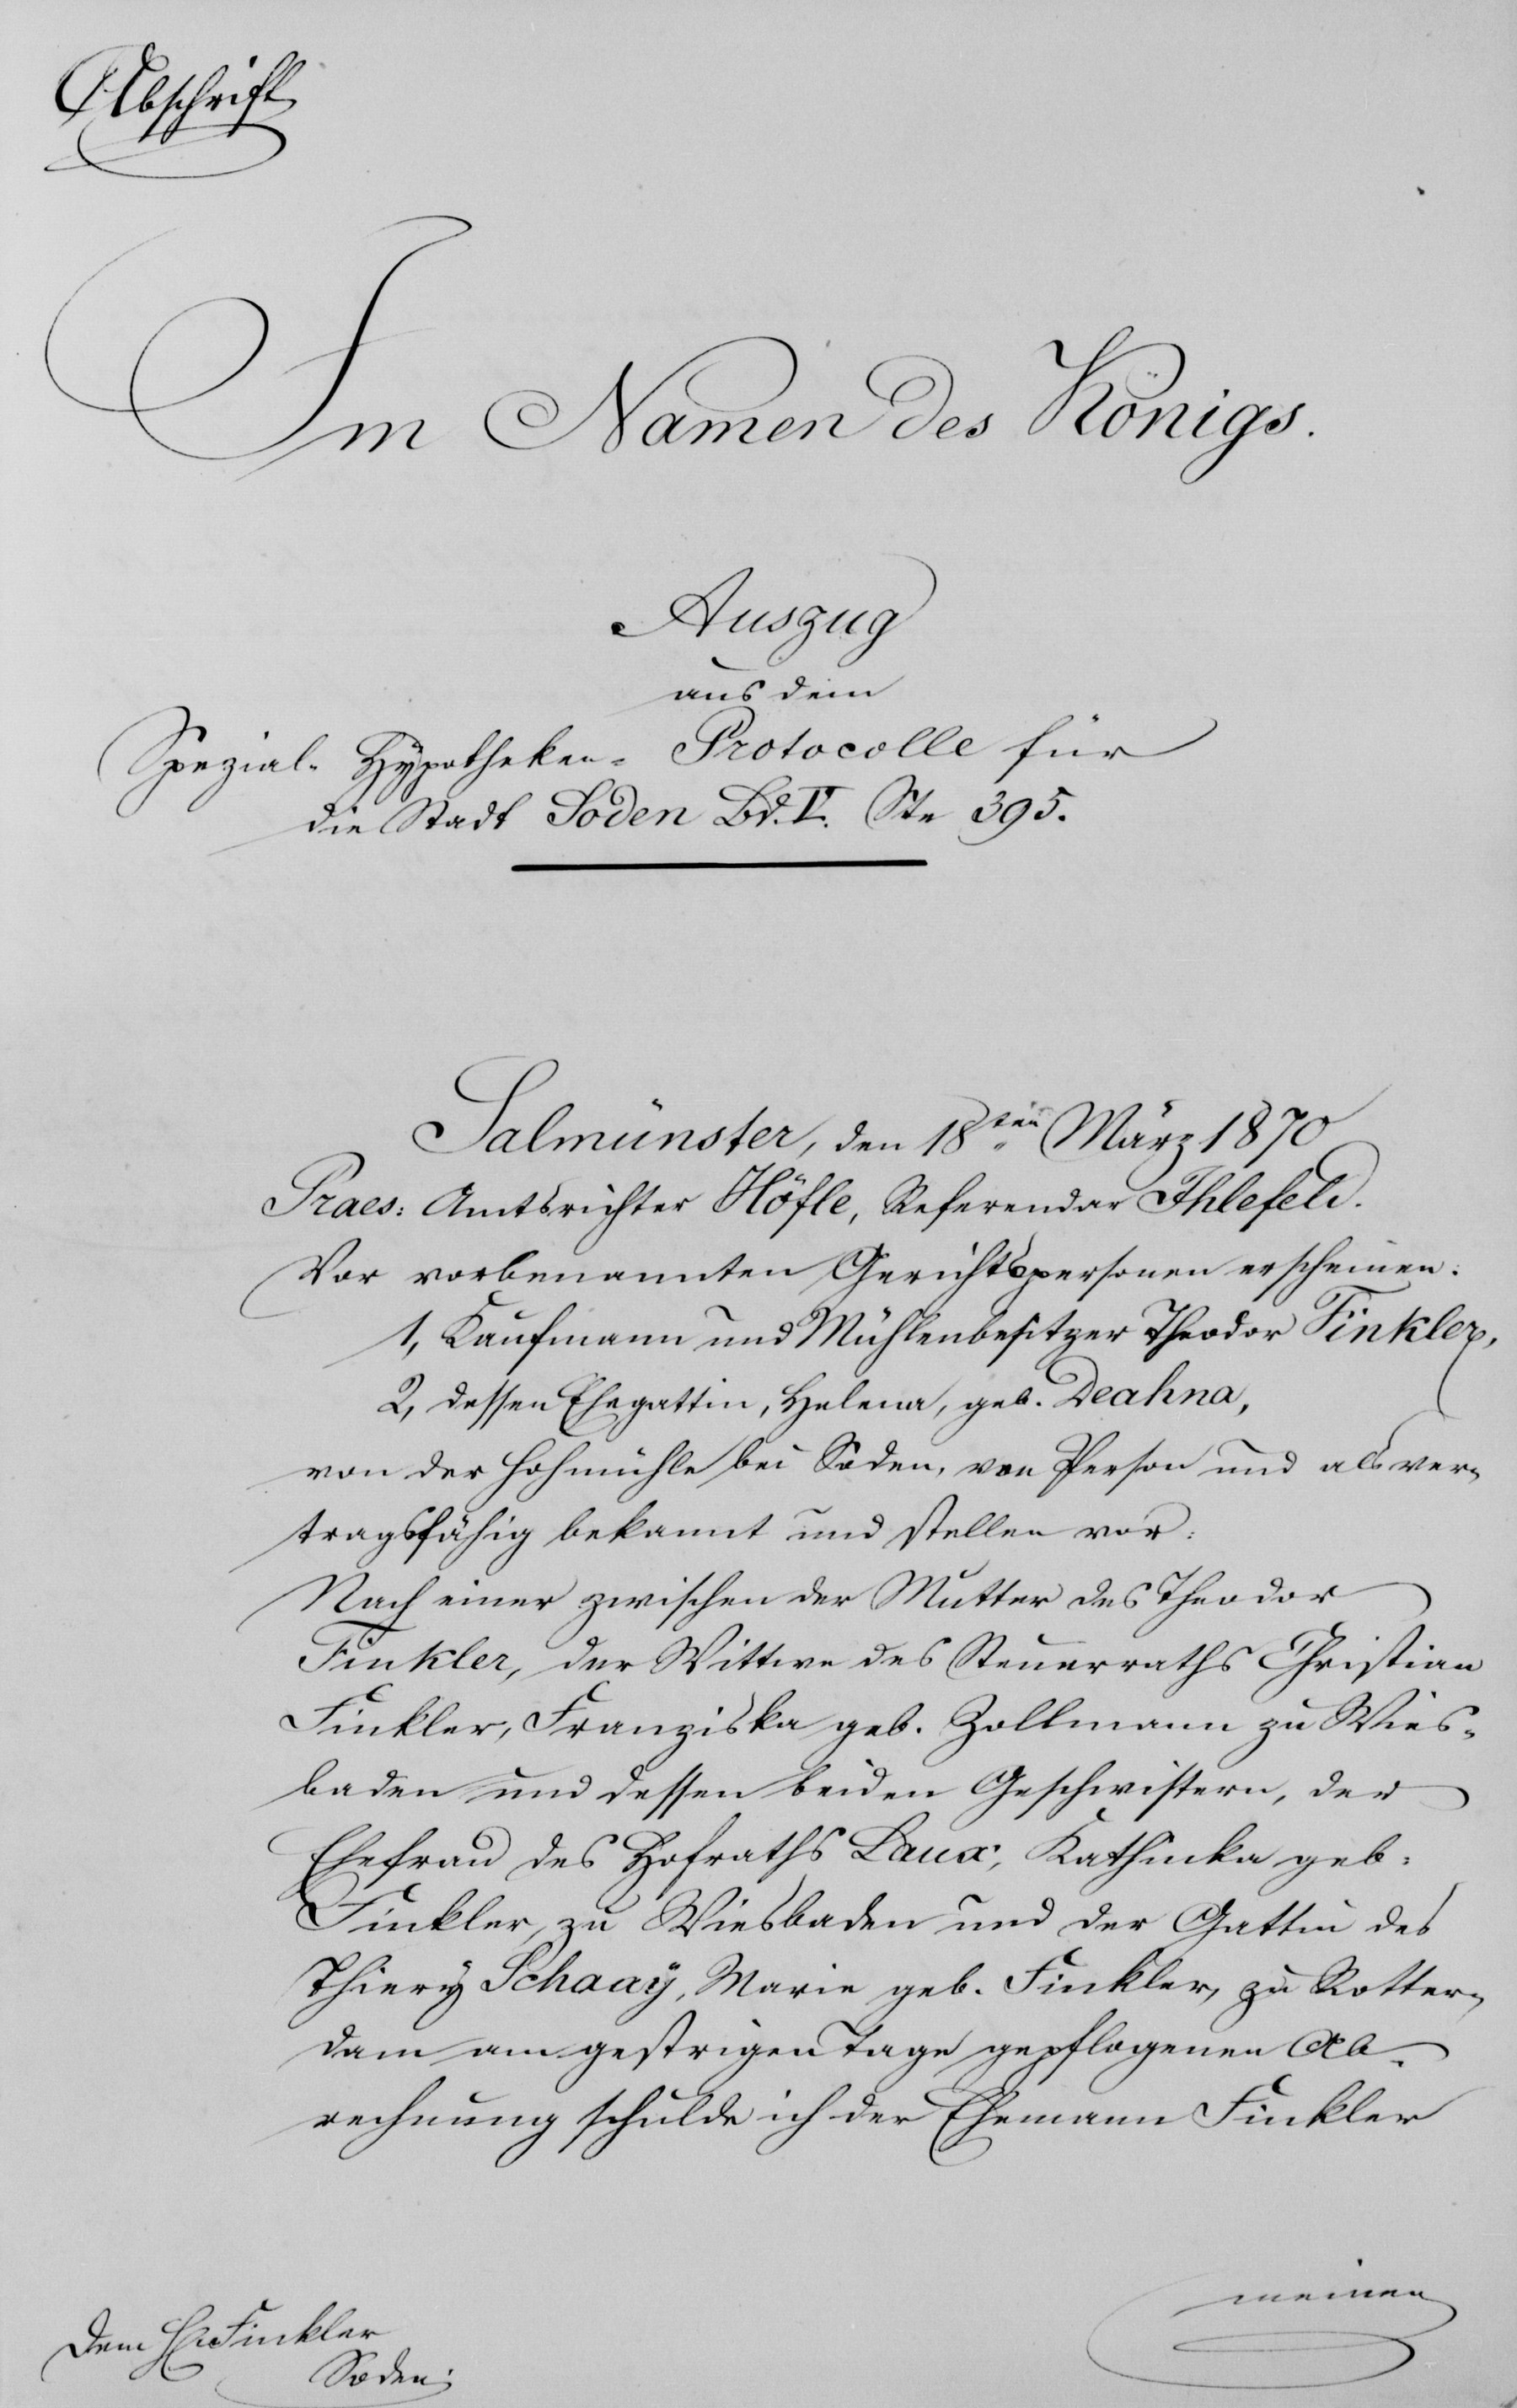 Abschrift
Im Namen des Königs.
Auszug
aus dem
Spezial-Hypotheken-Protocolle für
die Stadt Soden Bd. V. Ste 395.
Salmünster, den 18ten März 1870
Praes: Amtsrichter Höfle, Referendar Ihlefeld.
Vor vorbenannten Gerichtspersonen erscheinen:
1, Kaufmann und Mühlenbesitzer Theodor Finkler,
2, dessen Ehegattin, Helena, geb. Deahna,
von der Hohmühle bei Soden, von Person und als ver-
tragsfähig bekannt und stellen vor:
Nach einer zwischen der Mutter des Theodor
Finkler, der Wittwe des Steuerraths Christian
Finkler, Franziska geb. Zollmann zu Wies-
baden und dessen beiden Geschwistern, der
Ehefrau des Hofraths Laux, Kathinka geb.
Finkler, zu Wiesbaden und der Gattin des
Thiery Schaaÿ, Marie geb. Finkler, zu Rotter-
dam am gestrigen Tage gepflogenen Ab-
rechnung schulde ich der Ehemann Finkler
meinen
Dem H. Finkler
Soden